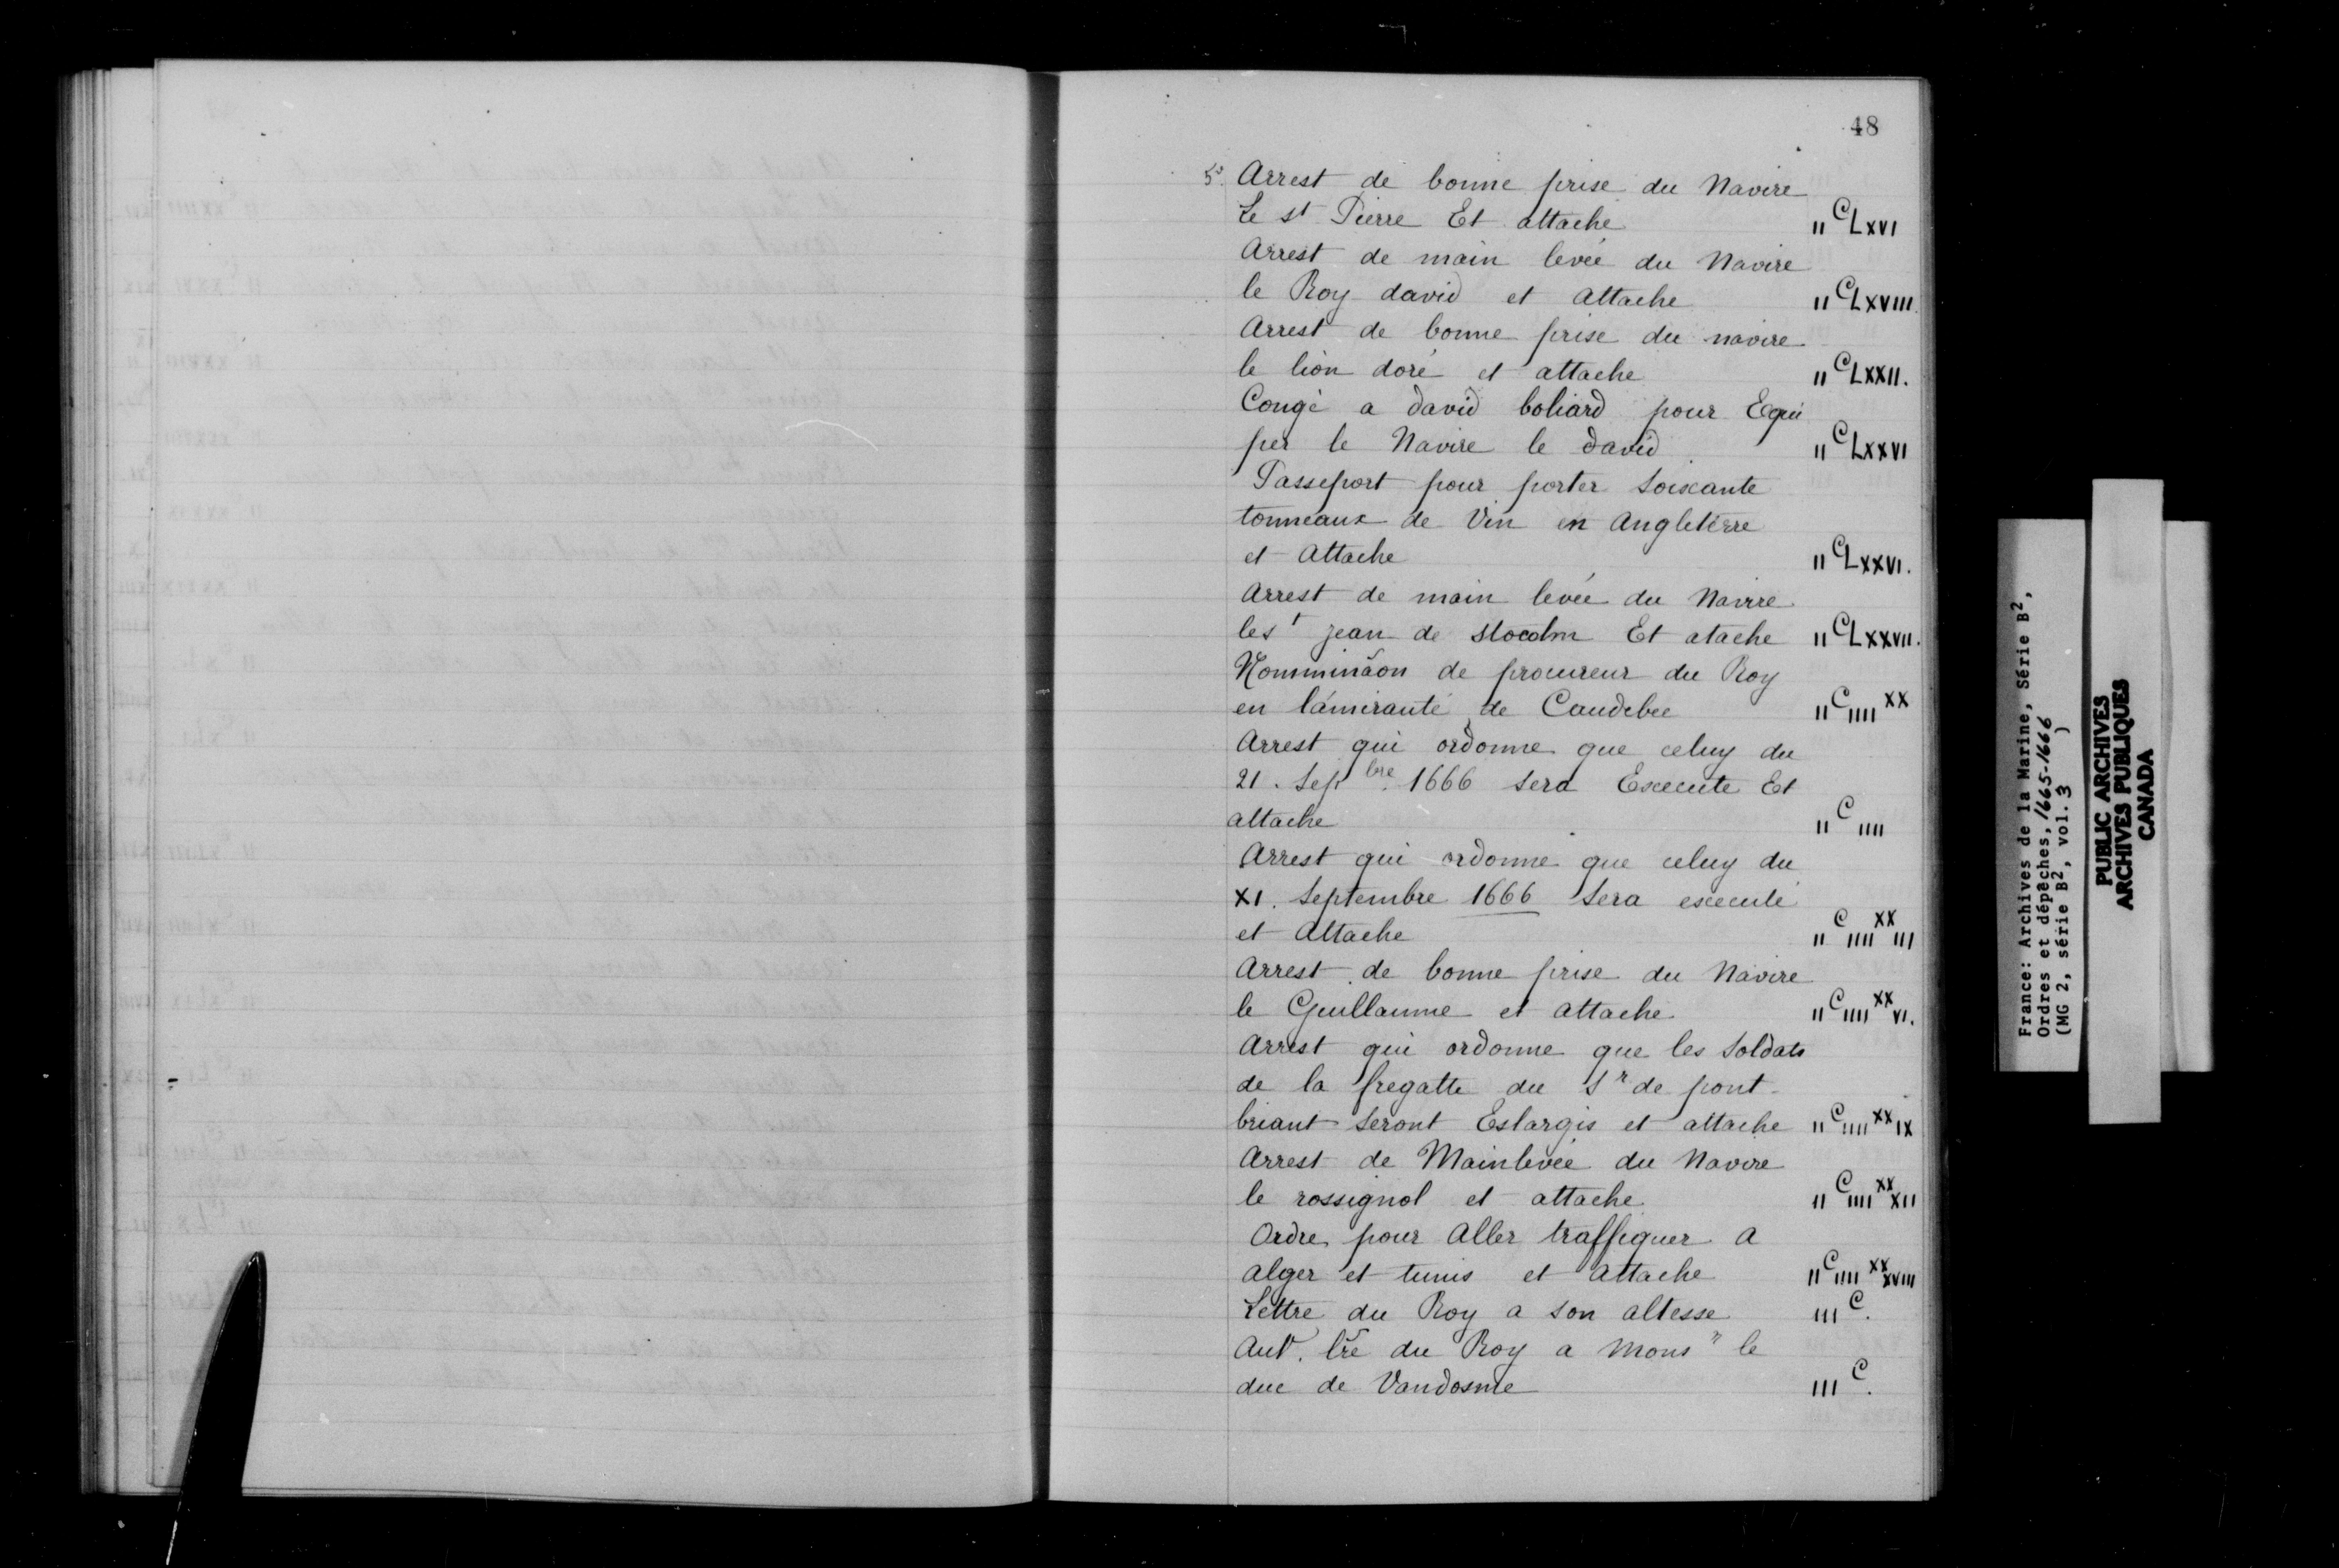 48
5º Arrest de bonne prise du Navire
Le st Pierre Et attache II^C LXVI
Arrest de main levée du Navire
le Roy david et attache II^C LXVIII.
Arrest de bonne prise du navire
le lion doré et attache II^C LXXII.
Congé a david boliard pour Equi
per le Navire le david II^C LXXVI
Passeport pour porter soixante
tonneaux de Vin en Angleterre
et Attache II^C LXXVI.
Arrest de main levée du Navire
les^t jean de stocolm Et atache II^C LXXVII.
Nomminãon de procureur du Roy
en l'amirauté de Caudebec II^C IIII^XX
Arrest qui ordonne que celuy du
21. Sep^bre. 1666 sera Execute Et
attache II^C IIII
Arrest qui ordonne que celuy du
XI. Septembre 1666 Sera execulé
et Attache II^C IIII^XX III
Arrest de bonne prise du Navire
le Guillaume et attache II^C IIII^XX VI.
Arrest qui ordonne que les Soldats
de la fregatte du S^r de pont-
briant seront Eslargis et attache II^C IIII^XX IX
Arrest de Mainlevée du Navire
le rossignol et attache II^C IIII^XX XII
Ordre pour Aller traffiquer A
alger et tunis et Attache II^C IIII^XX XVIII
Lettre du Roy a son altesse III^C.
Aut^e. lr̃e du Roy a Mons^r le
duc de Vandosme III^C.
France: Archives de la Marine, Série B²,
Ordres et dépêches, 1665-1666
(MG 2, série B², vol. 3 )
PUBLIC ARCHIVES
ARCHIVES PUBLIQUES
CANADA